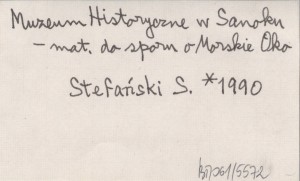 Muzeum Historyczne w Sanoku
– mat. do sporu o Morskie Oko
Stefański S. *1990
/5572